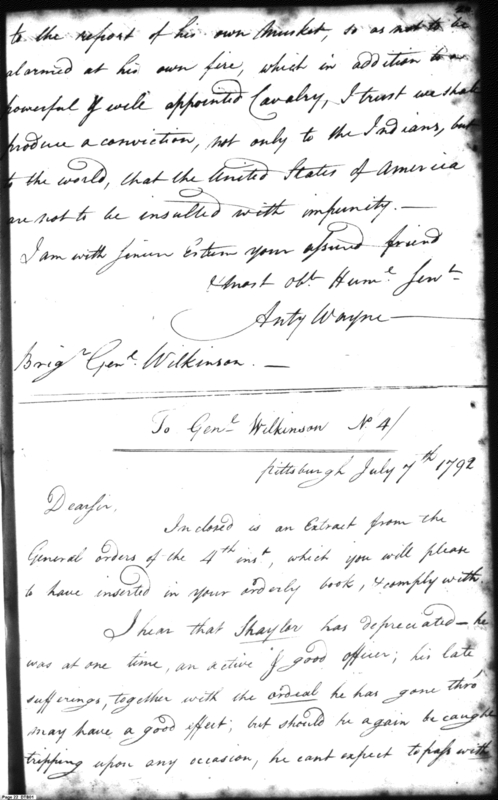 to the report of his own Musket, so as not to be
alarmed at his own fire, which in addition to a
powerful & well appointed Cavalry, I trust we shall
produce a conviction, not only to the Indians, but
to the world, that the United States of America
are not to be insulted with impunity. —
I am with sincere Esteem your assured friend
& most obt. Humle. Servt.
Anty Wayne
Brigr. Genl. Wilkinson. —
To Genl. Wilkinson No. 4/
pittsburgh July 7th 1792
Dear sir,
Inclosed is an Extract from the
General orders of the 4th inst, which you will please
to have inserted in your orderly book, & comply with.
I hear that Shaylor has depreciated — he
was at one time, an active & good officer; his late
sufferings, together with the ordeal he has gone thro'
may have a good effect; but should he again be caught
tripping upon any occasion, he cant expect to pass with
Page 22